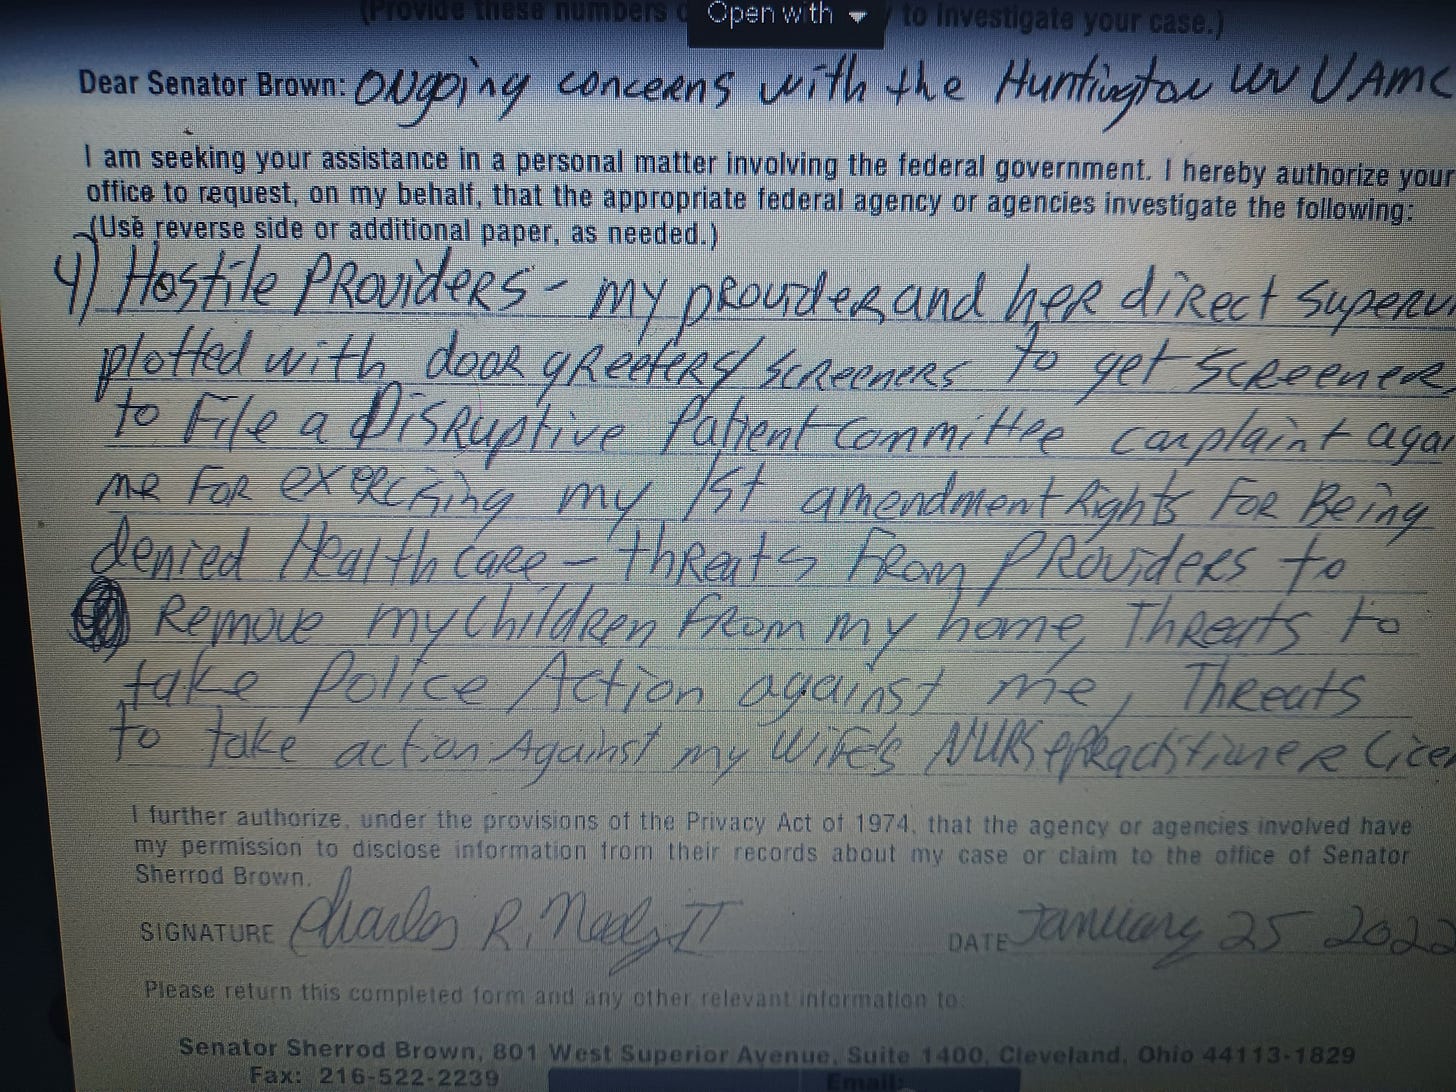 (Provide these numbers
to investigate your case.)
Open with
Dear Senator Brown: Ongoing concerns with the Huntington WV VAMC
I am seeking your assistance in a personal matter involving the federal government. I hereby authorize your
office to request, on my behalf, that the appropriate federal agency or agencies investigate the following:
(Use reverse side or additional paper, as needed.)
4) Hostile Providers - my provider and her direct Superv
plotted with door greeters/screeners to get screener
to File a Disruptive Patient Committee complaint agai
me For exercising my 1st amendment Rights For Being
denied Health care - threats From Providers to
Remove my Children From my home, Threats to
take Police Action against me, Threats
to take action Against my Wife's Nurse Practitioner Licen
I further authorize, under the provisions of the Privacy Act of 1974, that the agency or agencies involved have
my permission to disclose information from their records about my case or claim to the office of Senator
Sherrod Brown.
SIGNATURE Charles R. Neely II DATE January 25 2022
Please return this completed form and any other relevant information to:
Senator Sherrod Brown, 801 West Superior Avenue, Suite 1400, Cleveland, Ohio 44113-1829
Fax: 216-522-2239 Email: